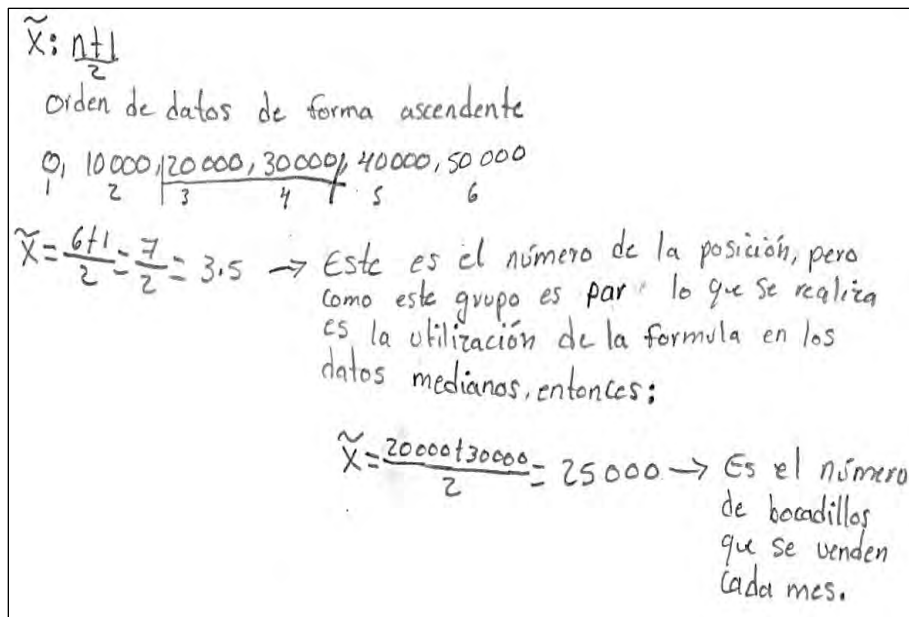 x̃: n+1/2
Orden de datos de forma ascendente
0, 10000, 20000, 30000, 40000, 50000
1 2 3 4 5 6
x̃ = 6+1/2 = 7/2 = 3.5 → Este es el número de la posición, pero
como este grupo es par lo que se realiza
es la utilización de la formula en los
datos medianos, entonces:
x̃ = 20000+30000/2 = 25000 → Es el número
de bocadillos
que se venden
cada mes.